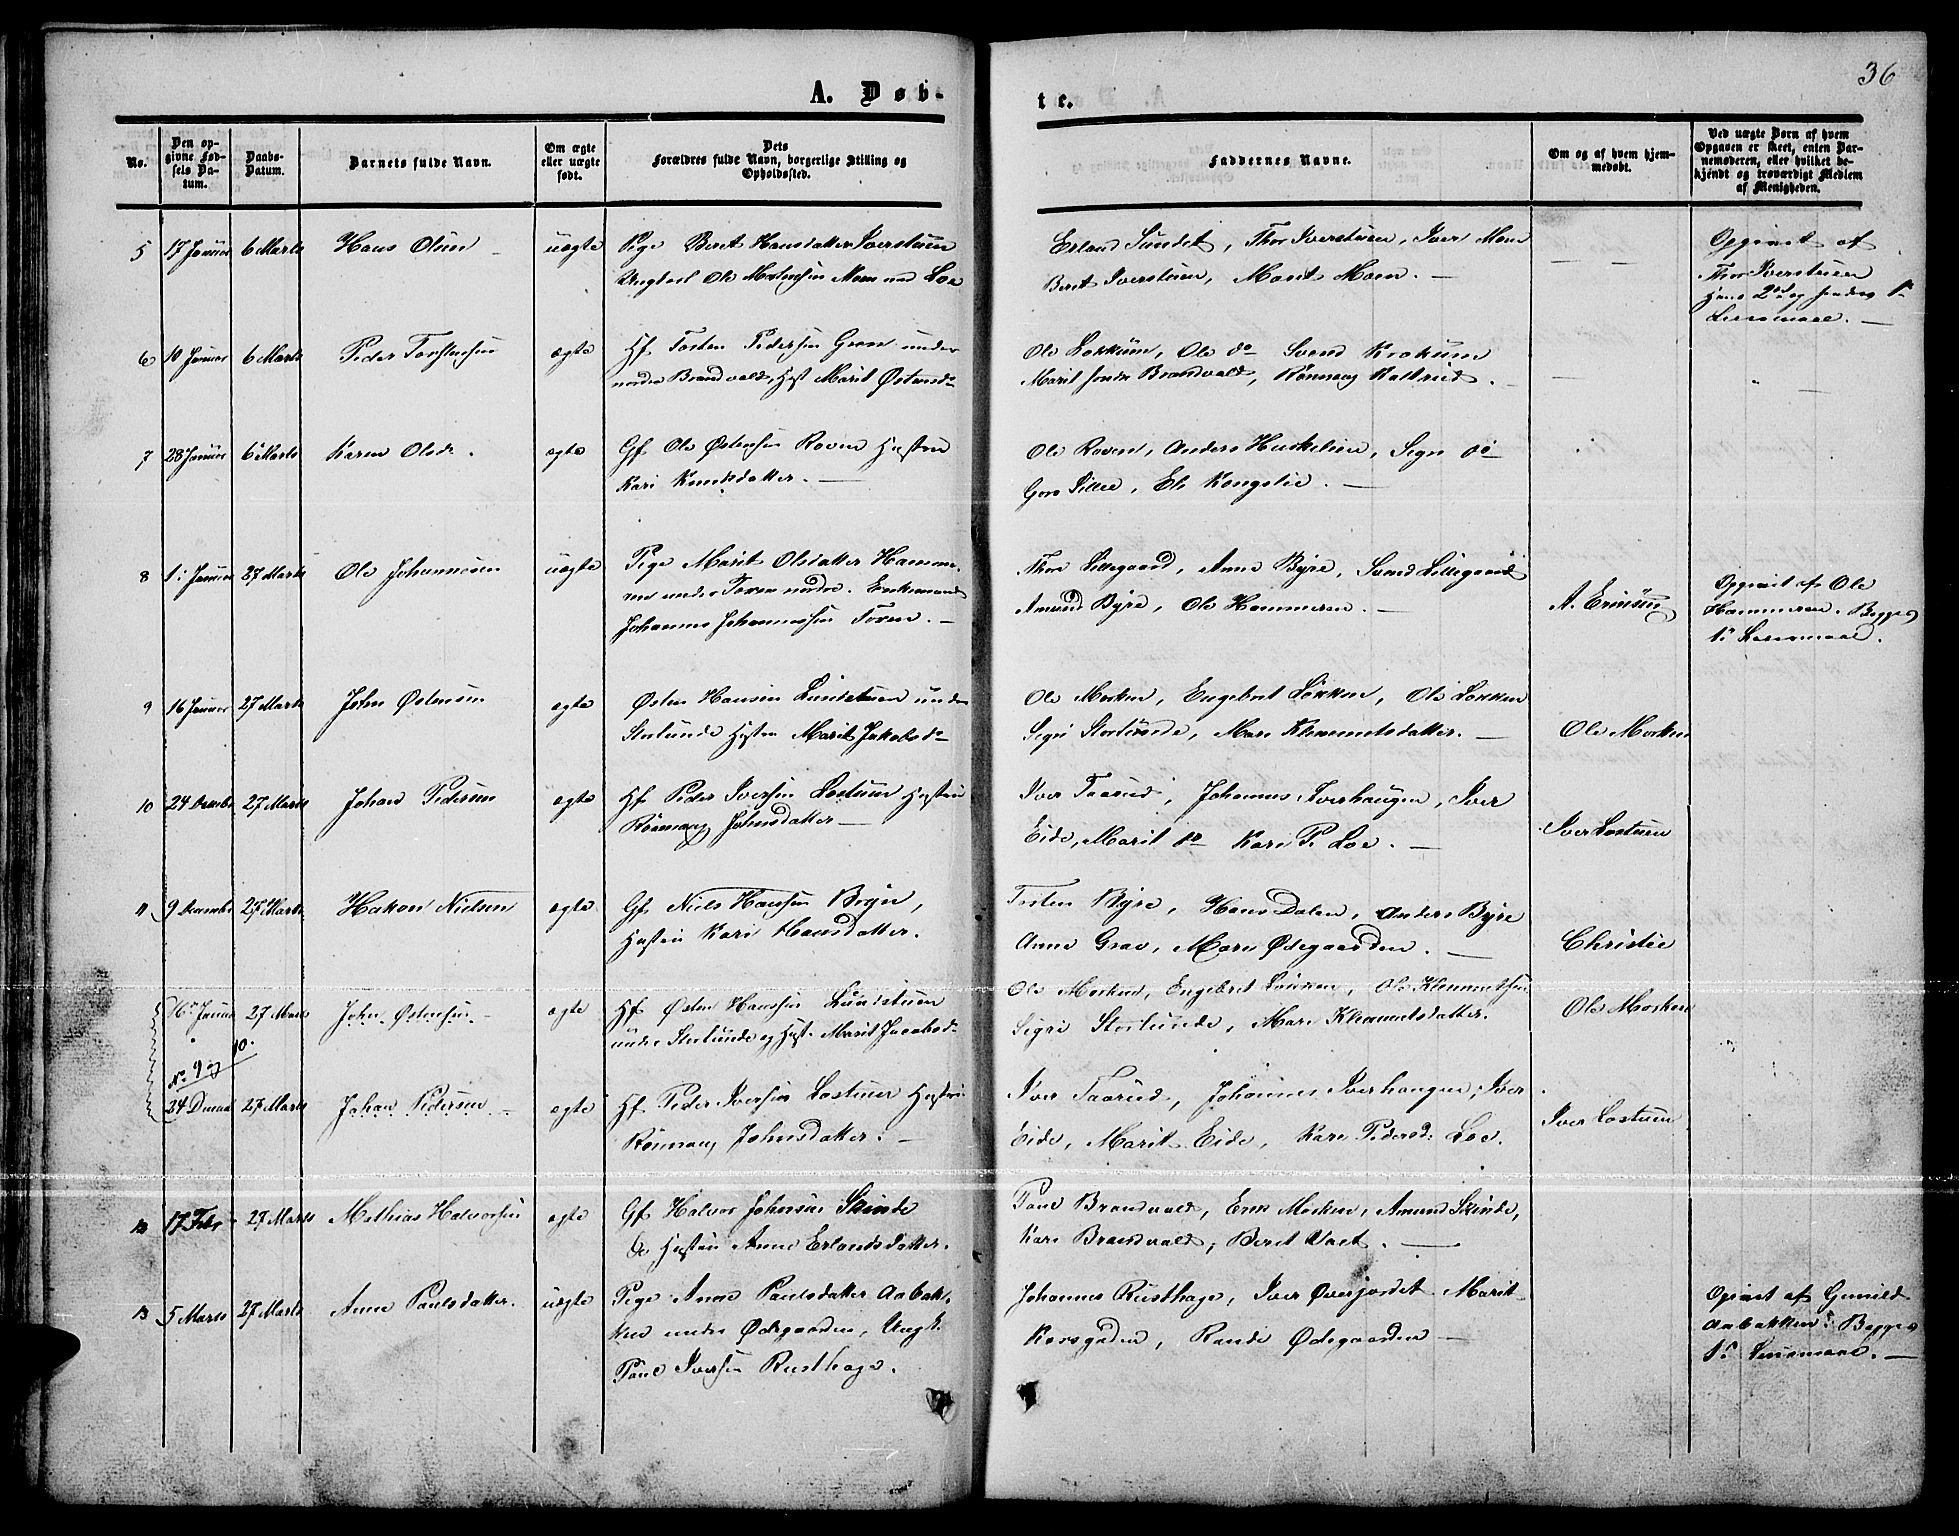 A. Døb-
te.
36
No.
Den op-
givne Fød-
sels Da-
tum.
Daabs-
Datum.
Barnets fulde Navn.
Om ægte
eller uægte
født.
Dets
Forældres fulde Navn, borgerlige Stilling og
Opholdssted.
Faddernes Navne.
Om og af hvem hjem-
medøbt.
Ved uægte Børn af hvem
Opgaven er skeet, enten Bar-
nemoderen, eller hvilket be-
kjendt og troværdigt Medlem
af Menigheden.
5 17 Januar 6 Marts Hans Olsen uægte Pige Beret Hansdatter Iverstuen
Ungkarl Ole Mathisen Moen Loe
Erland Sundet, Thor Iverstuen, Iver Moen
Beret Iverstuen, Marit Moen. —
Opgivet af
Thor Iverstuen
Leiermaal. —
6 10 Januar 6 Marts Peder Torstensen ægte Hf Torsten Pedersen Groven under
nordre Brandvold, Hust Marit Østensd
Ole Løkkum, Ole do Svend Krokum
Marit søndre Brandvold, Rønnaug Kaltrud.
7 28 Januar 6 Marts Karen Olsdr. ægte Gf Ole Østensen Roven Hustru
Kari Knudsdatter. —
Ole Roven, Anders Huskelien, Sigri do
Goro Lillee, Eli Kongslie. —
8 1. Januar 27 Marts Ole Johannesen uægte Pige Marit Olsdatter Hamme-
ren under Toven nordre. Enkemand
Johannes Johannessen Toven. —
Thore Lillegaard, Anne Byre, Svend Lillegaard
Amund Byre, Ole Hammeren. —
A. Erensen
Opgivet af Ole
Hammeren. Begges
1ste Leiermaal.
9 16 Januar 27 Marts John Østensen ægte Østen Hansen Lundstuen under
Storlunde Hustru Marit Jakobsd
Ole Morken, Engebret Løkken, Ole Løkken
Sigri Storlunde, Mari Klemmetsdatter. —
Ole Morken
10 24 Decembr 27 Marts Johan Pedersen ægte Hf Peder Iversen Lostuen Hustru
Rønnaug Johnsdatter —
Iver Taarud, Johannes Iverhaugen, Iver
Eide, Marit do Kari P. Loe. —
Iver Lostuen
11 9 Decembr 27 Marts Hakon Nielsen ægte Gf Niels Hansen Bryn,
Hustru Kari Hansdatter.
Torsten Byre, Hans Dalen, Anders Byre
Anne Grav, Mari Ødegaarden. —
Christie
16 Januar 27 Marts John Østensen ægte Hf Østen Hansen Lundstuen
under Storlunde og Hust. Marit Jacobsd
Ole Morken, Engebret Løkken, Ole Klemmetsen
Sigri Storlunde, Mari Klemmetsdatter.
Ole Morken
No. 9 og 10.
24 Decbr 27 Marts Johan Pedersen ægte Hf Peder Iversen Lostuen Hustru
Rønnaug Johnsdatter. —
Iver Taarud, Johannes Iverhaugen, Iver
Eide, Marit Eide, Kari Pedersd. Loe.
Iver Lostuen
12 17 Febr 27 Marts Mathias Halvorsen ægte Gf Halvor Johnsen Skinde
og Hustru Anne Erlandsdatter.
Paul Brandvold, Erik Morken, Amund Skinde,
Kari Brandvold, Beret Vaet. —
13 5 Marts 27 Marts Anne Paulsdatter. uægte Pige Anne Paulsdatter Aabak-
ken under Ødegaarden, Ungk.
Paul Iversen Rusthage.
Johannes Rusthage, Iver Øverjordet Marit
Korsgaden, Randi Ødegaarden —
Opgivet af Gunild
Aabakken. Begges
1ste Leiermaal. —